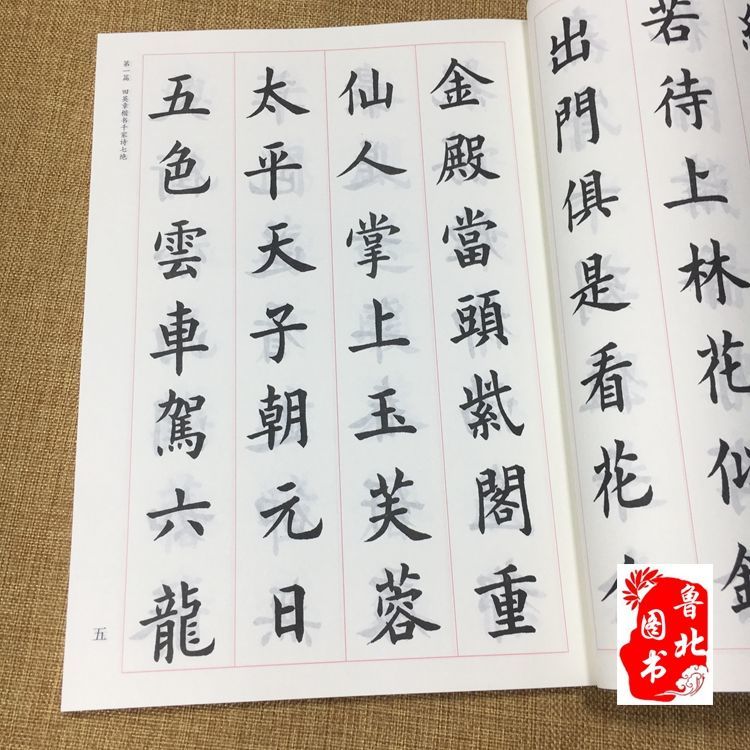 若待上林花似
出門俱是看花
金殿當頭紫閣重
仙人掌上玉芙蓉
太平天子朝元日
五色雲車駕六龍
第一篇 田英章楷书千家诗七绝
五
鲁北
图书